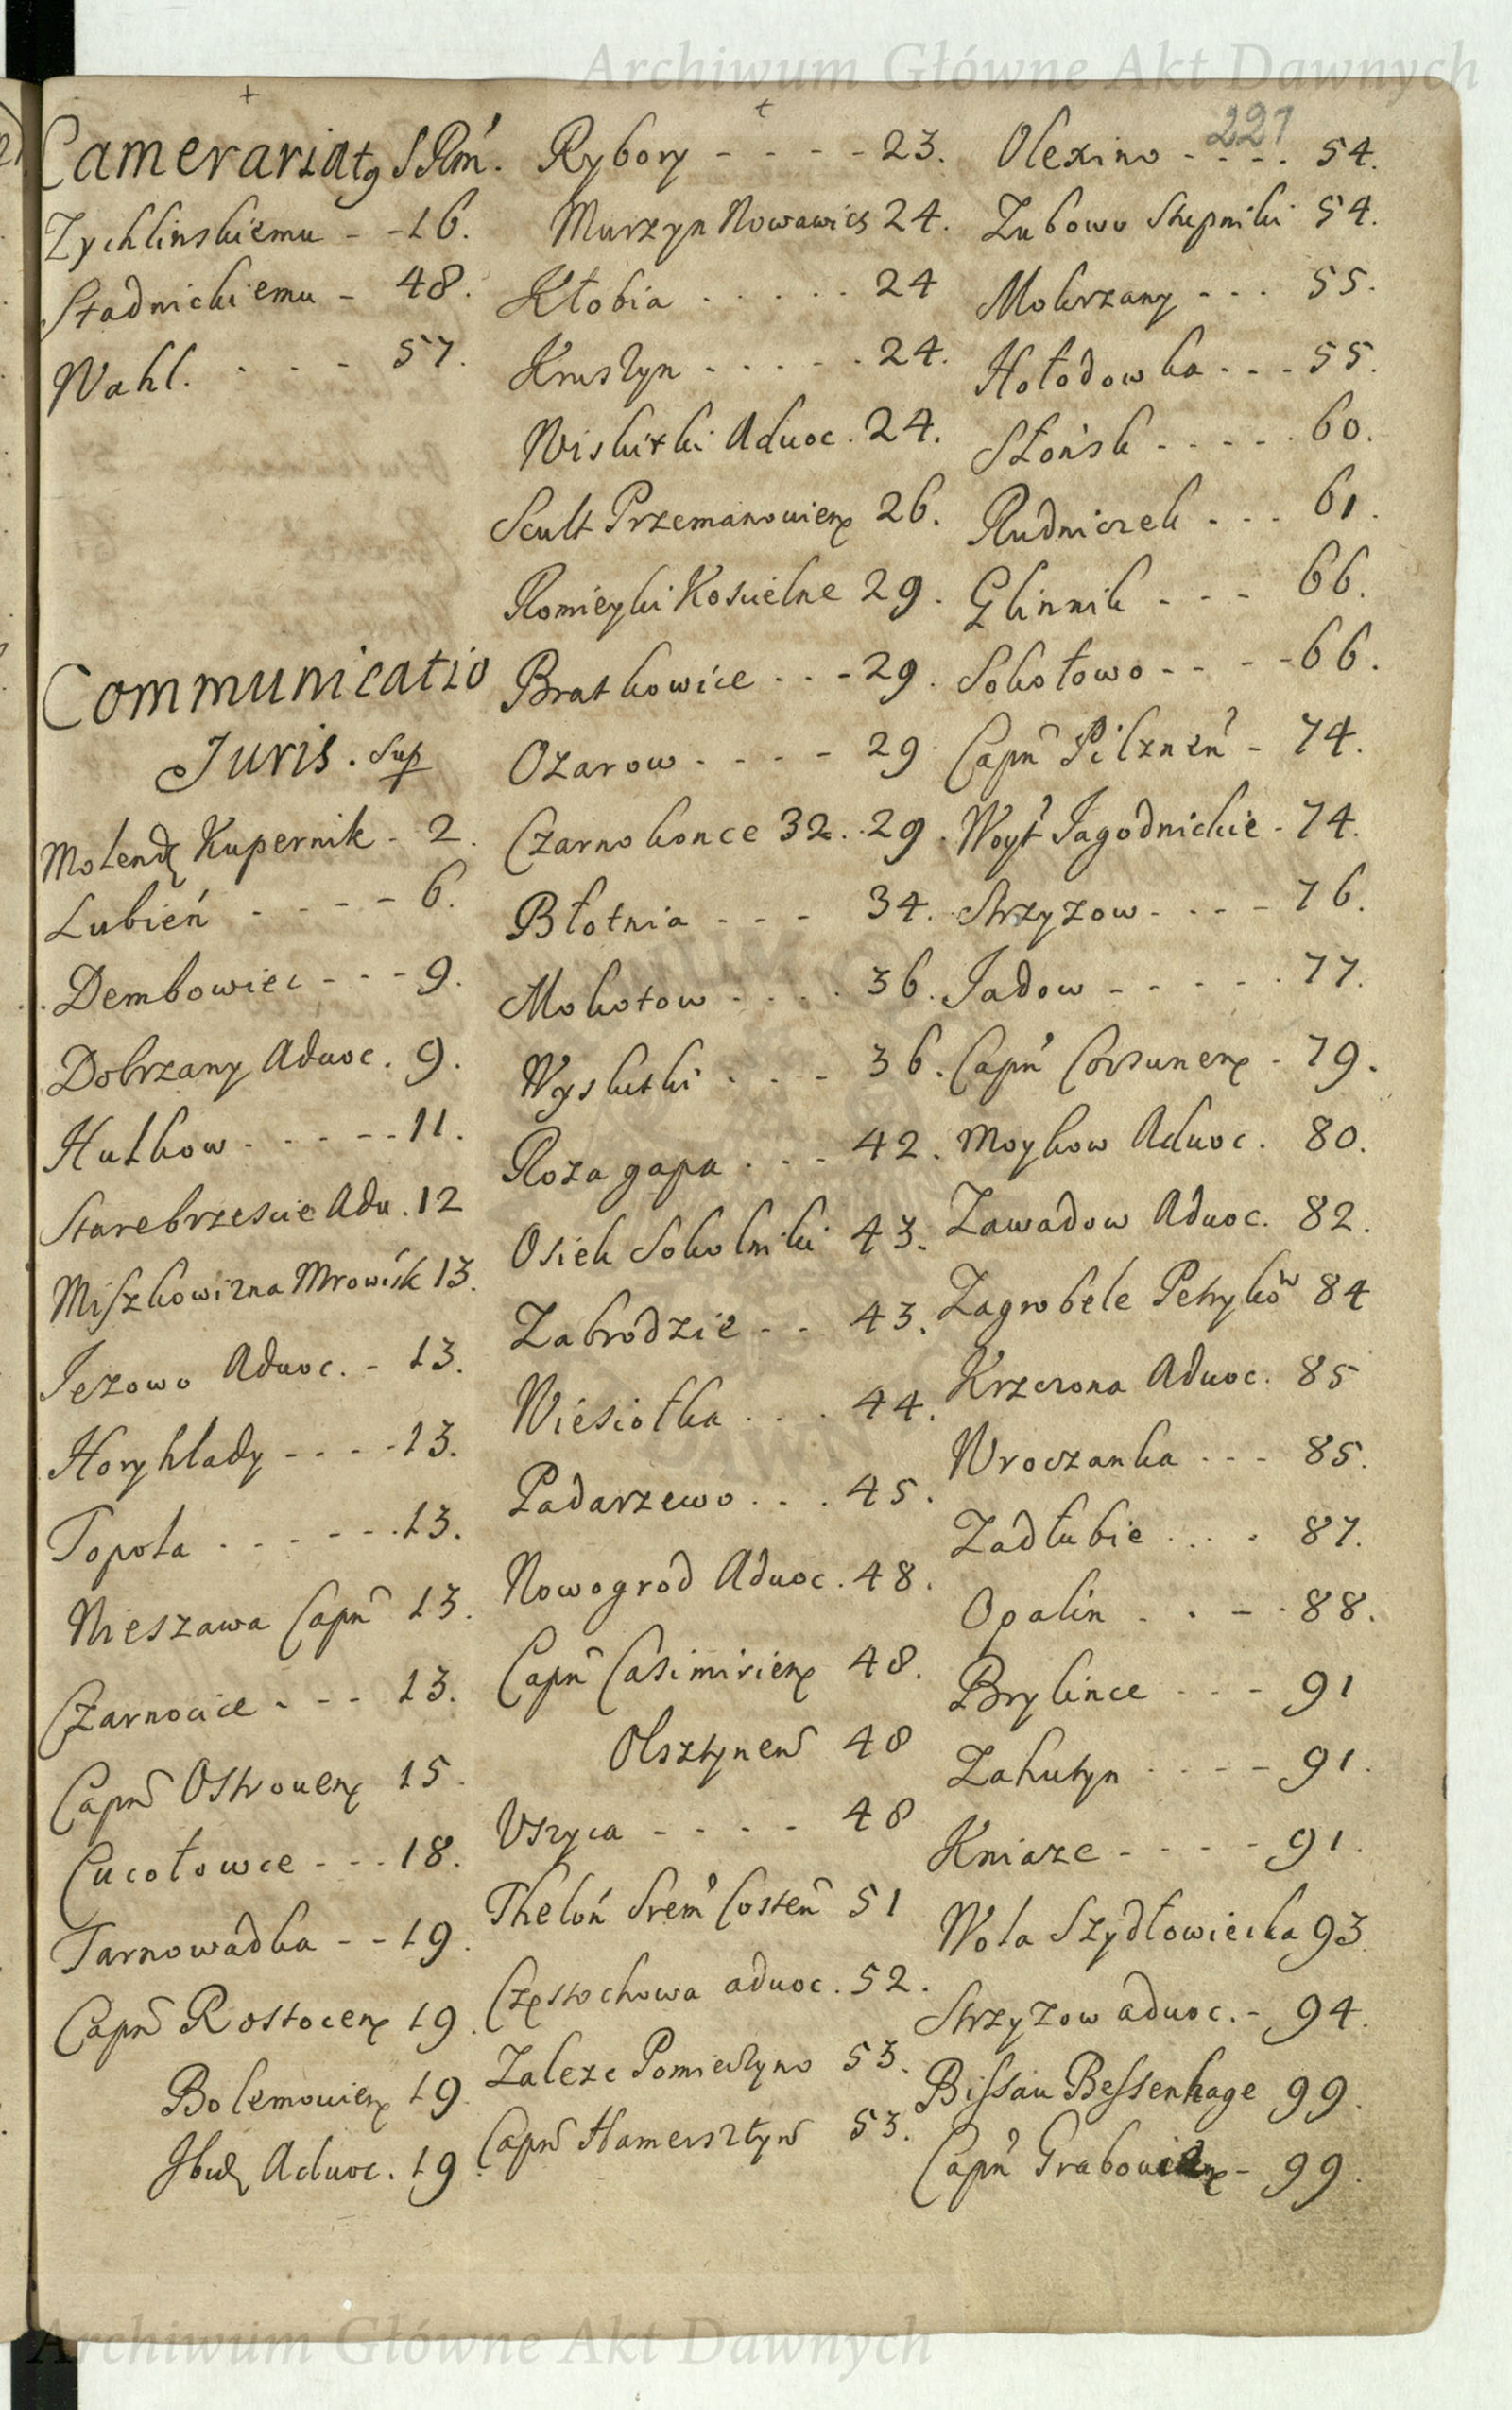 Archiwum Główne Akt Dawnych
221
Camerariatq S Rm̄.
Zychlinskiemu - - 16.
Stadnickiemu - 48.
Wahl. . . - 57.
Communicatio
Juris. Sup
Molend Kupernik - 2.
Lubień - - - - 6.
Dembowiec - - - 9.
Dobrzany Aduoc. 9.
Hutkow - - - - - 11.
Starebrzescie Adu. 12
Miszkowizna Mrowisk 13.
Jezowo Aduoc. - 13.
Horyhlady - - - - 13.
Topola . . - - - - 13.
Nieszawa Capn̄ 13.
Czarnocice - - - 13.
Capn̄ Ostrouen 15.
Cucołowce - - - 18.
Tarnowadka - - 19.
Capn̄ Rostocen 19.
Bolemouien 19.
Aduoc. 19.
Rybory - - - - 23.
Murzyn Nowawies 24.
Kłobia . . . . . 24
Kruszyn . . . . . 24.
Wiskitki Aduoc. 24.
Scult Przemanouien 26.
Romieyki Koscielne 29.
Bratkowice . . - 29.
Ozarow . - - - 29
Czarnokonce 32. . 29.
Błotnia - - - 34.
Mokotow - . . . 36.
Wyskitki . . - 36.
Roza gapa . . - 42.
Osiek Sokolniki 43.
Zabrodzie - - 43.
Wiesiołka . . . 44.
Padarzewo . . . 45.
Nowogrod Aduoc. 48.
Capn̄ Casimirien 48.
Olsztynen̄ 48
Uszyca - - - - 48
Thelon̄ Srem̄ Costen̄ 51
Częstochowa aduoc. 52.
Zaleze Pomieczyno 53.
Capn̄ Hamersztyn̄ 53.
Olexino - - . . 54.
Zubowo Stepniki 54.
Mokrzany - - . 55.
Hołodowka . . - 55.
Słońsk - - - - . 60.
Rudniczek . . - 61.
Glinnik - - - 66.
Sokołowo - - - - 66.
Capn̄ Pilznen̄ - 74.
Woyt Jagodnickie - 74.
Strzyzow . - - - 76.
Jadow - - - - . 77.
Capn̄ Corsunen - 79.
Moykow Aduoc. 80.
Zawadow Aduoc. 82.
Zagrobele Petrykow 84
Krzczona Aduoc. 85
Wroczanka . . - 85.
Zadłubie . . . . 87.
Opalin . . - . 88.
Brylince - - - 91
Zahutyn . - - - 91.
Kniaze - - - - 91.
Wola Szydłowiecka 93
Strzyzow aduoc. - 94.
Bissau Bessenhage 99.
Capn̄ Grabouien - 99.
Archiwum Główne Akt Dawnych